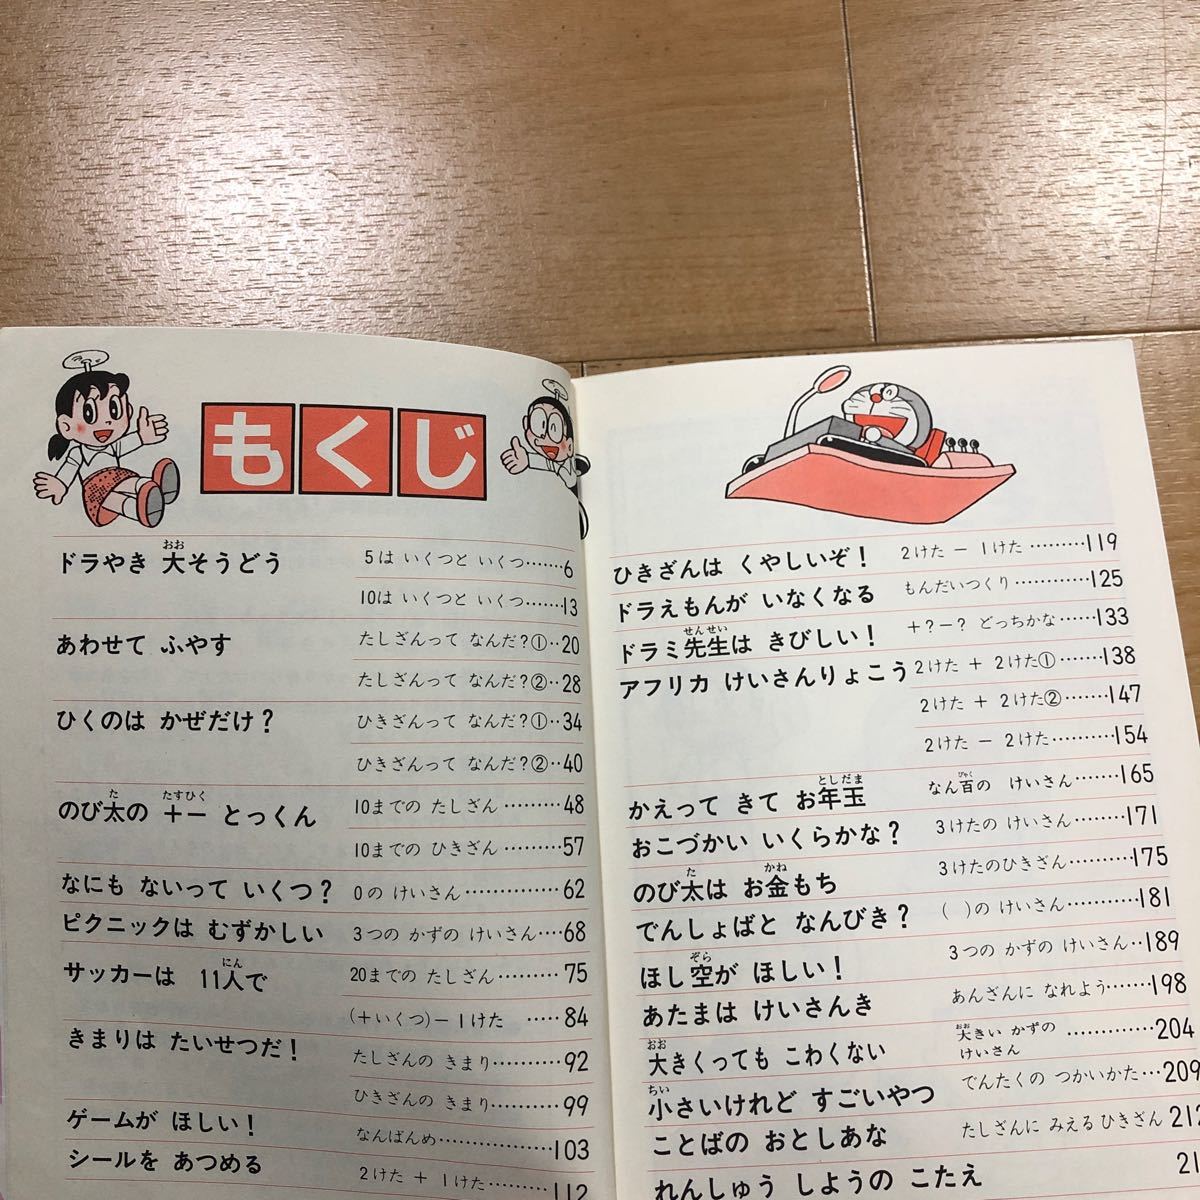 もくじ
ドラやき 大そうどう 5は いくつと いくつ……6
おお
10は いくつと いくつ……13
あわせて ふやす たしざんって なんだ?①‥20
たしざんって なんだ?②‥28
ひくのは かぜだけ? ひきざんって なんだ?①‥34
ひきざんって なんだ?②‥40
のび太の +− とっくん 10までの たしざん………48
た たすひく
10までの ひきざん………57
なにも ないって いくつ? 0の けいさん……………62
ピクニックは むずかしい 3つの かずの けいさん‥‥68
サッカーは 11人で 20までの たしざん………75
にん
(+いくつ)−1けた ‥‥‥84
きまりは たいせつだ! たしざんの きまり………92
ひきざんの きまり………99
ゲームが ほしい! なんばんめ……………103
シールを あつめる 2けた + 1けた………112
ひきざんは くやしいぞ! 2けた − 1けた………119
ドラえもんが いなくなる もんだいつくり…………125
ドラミ先生は きびしい! +?−? どっちかな……133
せんせい
アフリカ けいさんりょこう 2けた + 2けた①……138
2けた + 2けた②……147
2けた − 2けた………154
かえって きて お年玉 なん百の けいさん………165
としだま ぴゃく
おこづかい いくらかな? 3けたの けいさん………171
のび太は お金もち 3けたのひきざん………175
た かね
でんしょばと なんびき? ( )の けいさん………181
ほし空が ほしい! 3つの かずの けいさん‥189
ぞら
あたまは けいさんき あんざんに なれよう……198
大きくっても こわくない 大きい かずの けいさん…………204
おお おお
小さいけれど すごいやつ でんたくの つかいかた…209
ちい
ことばの おとしあな たしざんに みえる ひきざん 212
れんしゅう しようの こたえ